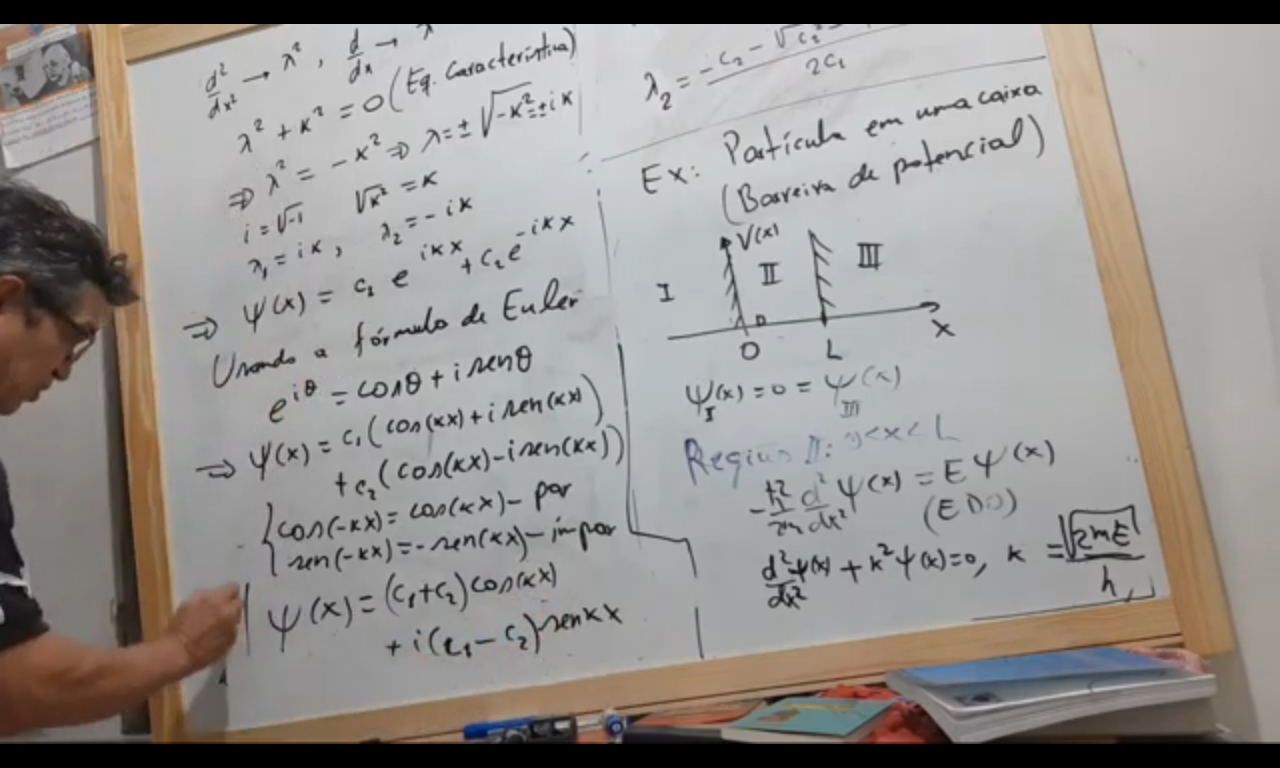 d²/dx² → λ², d/dx → λ
λ² + κ² = 0 (Eq. Característica)
⇒ λ² = -κ² ⇒ λ = ± √-κ² = ± iκ
i = √-1 √κ² = κ
λ₁ = iκ, λ₂ = -iκ
⇒ ψ(x) = c₁ e^{iκx} + c₂ e^{-iκx}
Usando a fórmula de Euler
e^{iθ} = cosθ + i senθ
⇒ ψ(x) = c₁ (cos(κx) + i sen(κx))
+ c₂ (cos(κx) - i sen(κx))
cos(-κx) = cos(κx) - par
sen(-κx) = -sen(κx) - ímpar
ψ(x) = (c₁+c₂) cos(κx)
+ i(c₁ - c₂) sen κx
λ₂ = (-c₂ - √c₂
2c₁
Ex: Partícula em uma caixa
(Barreira de potencial)
V(x)
I II III
0 L x
ψ_I(x) = 0 = ψ_III(x)
Região II: 0<x<L
-ħ²/2m d²/dx² ψ(x) = E ψ(x)
(EDO)
d²ψ(x)/dx² + k² ψ(x) = 0, κ = √2mE/ħ